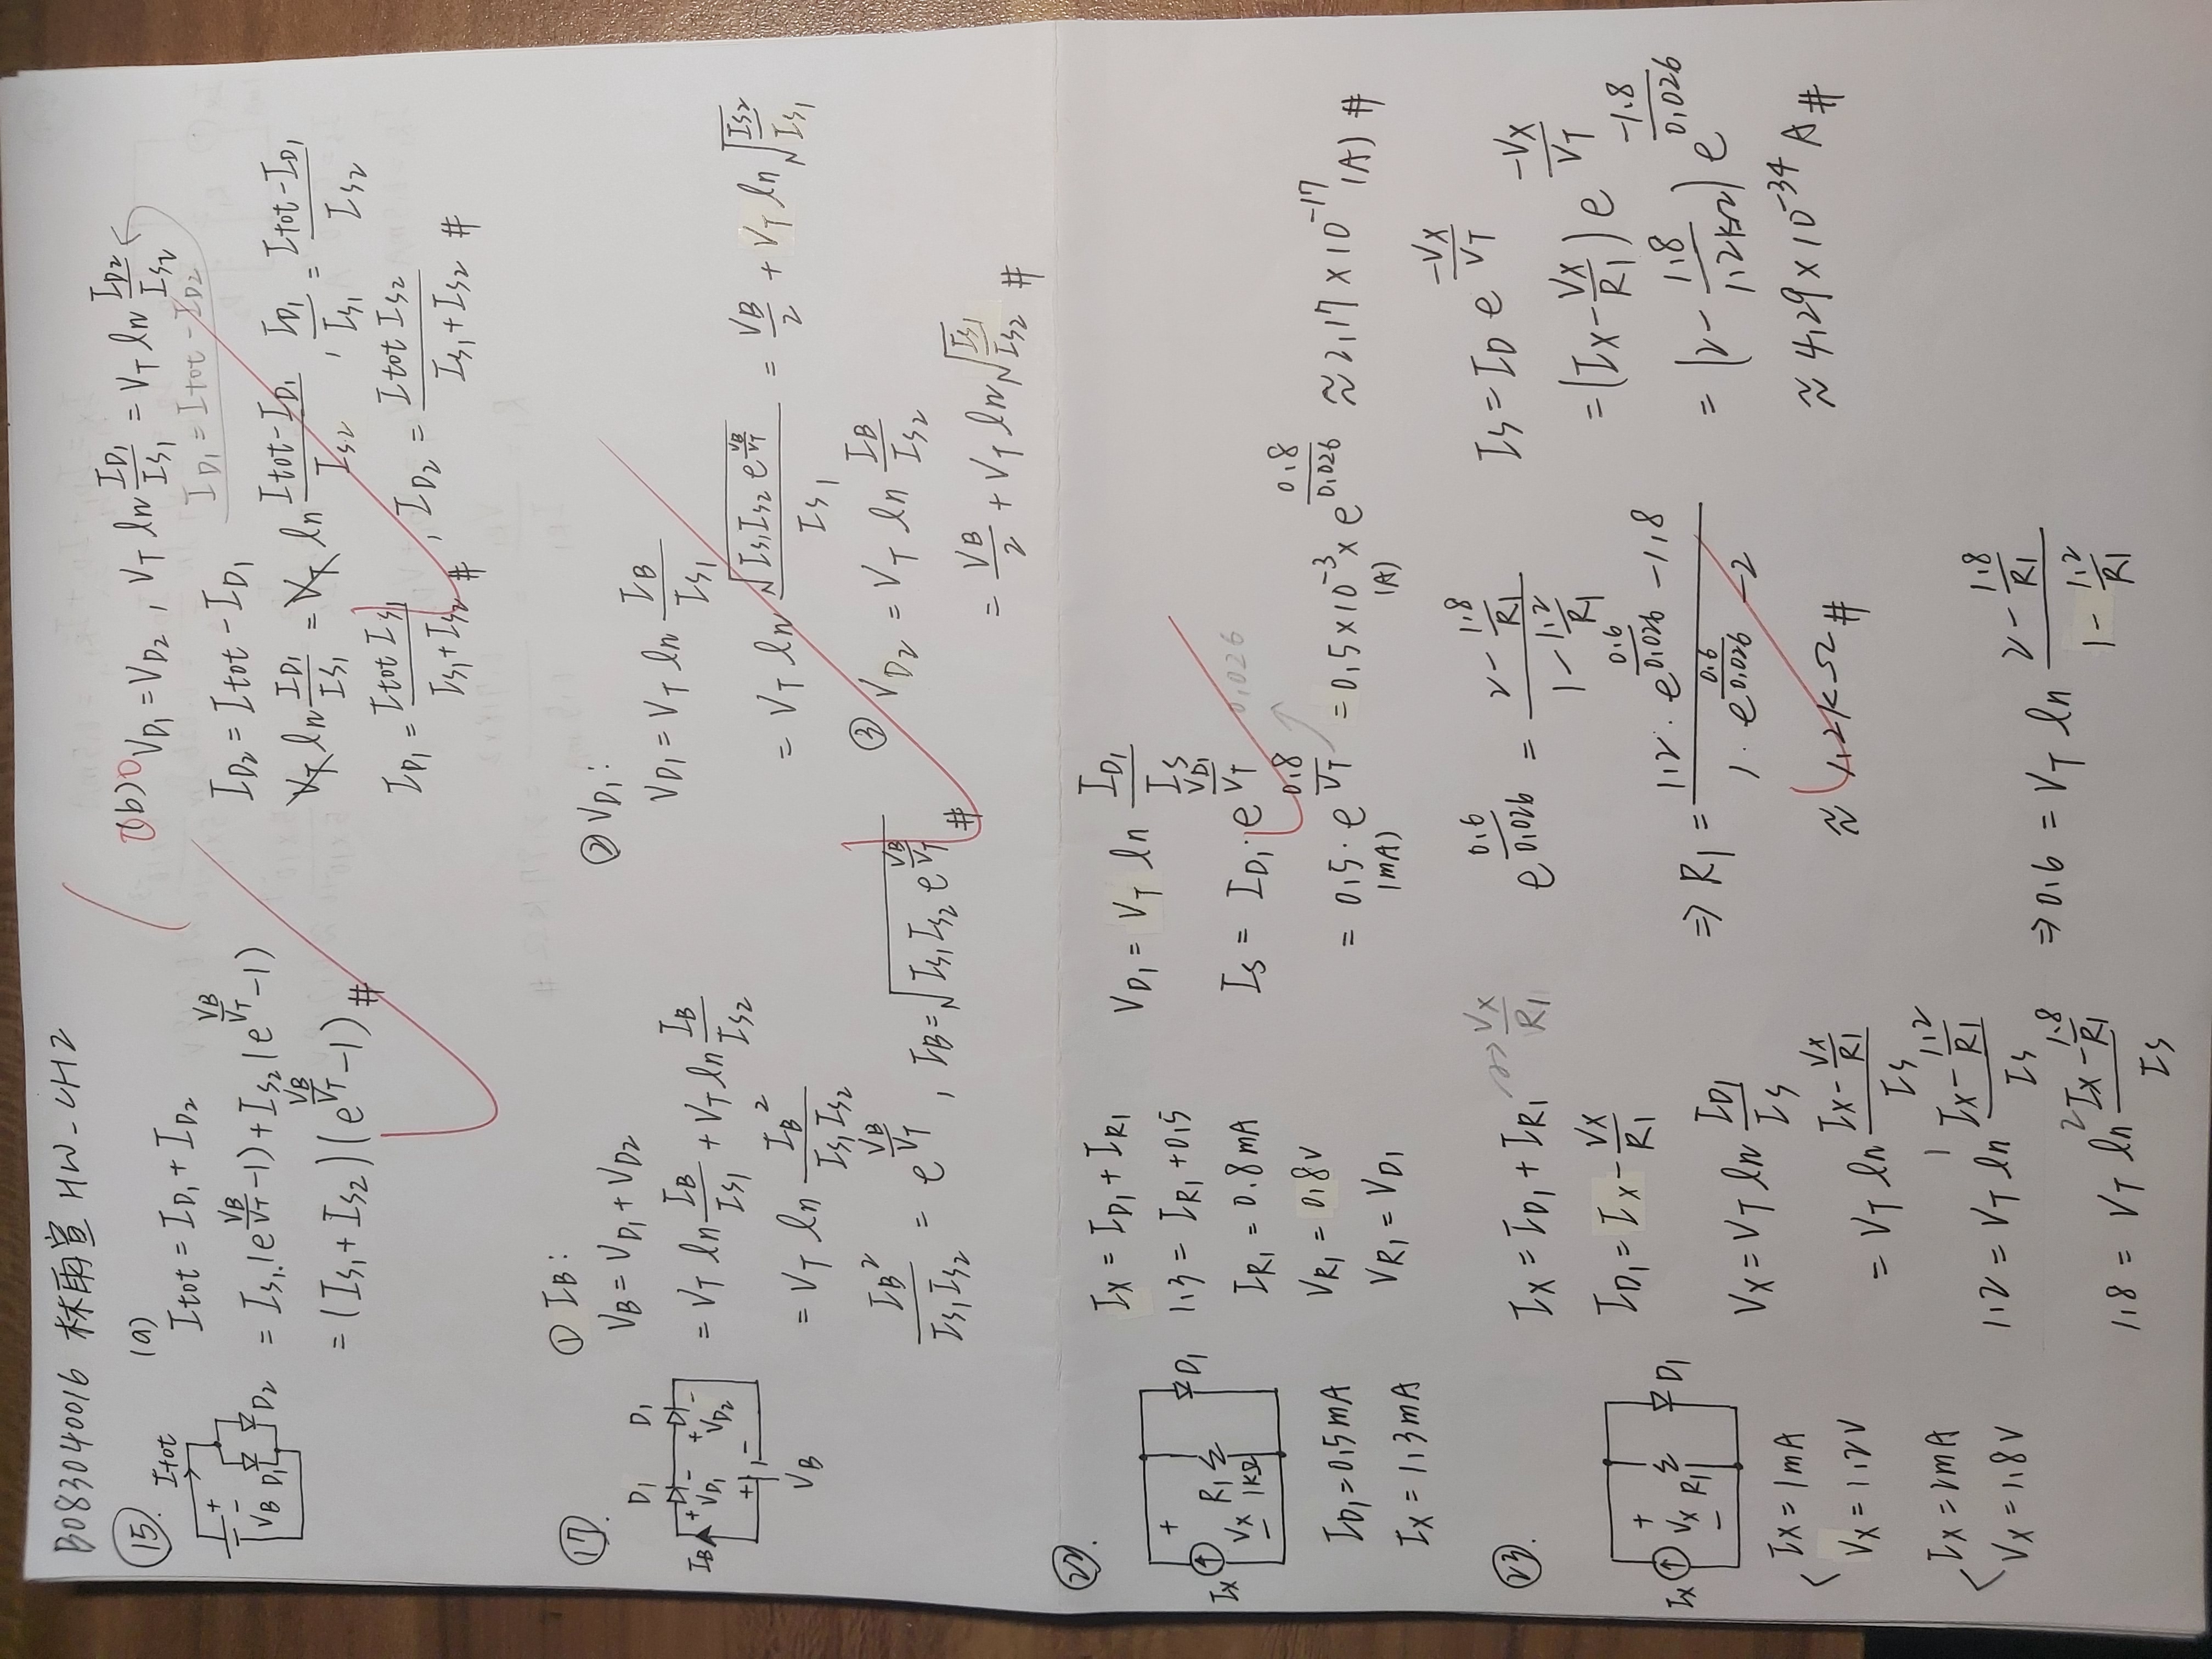 B083040016 林雨宣 HW_CH2
15.
Itot
VB D1 D2
(a)
Itot = ID1 + ID2
= IS1·(e^(VB/VT) -1) + IS2(e^(VB/VT) -1)
= (IS1 + IS2)(e^(VB/VT) -1) #
(b) VD1 = VD2 , VT ln ID1/IS1 = VT ln ID2/IS2
ID2 = Itot - ID1 ID1 = Itot - ID2
VT ln ID1/IS1 = VT ln (Itot-ID1)/IS2 , ID1/IS1 = (Itot-ID1)/IS2
ID1 = Itot IS1/(IS1+IS2) # , ID2 = Itot IS2/(IS1+IS2) #
17.
D1 D1
IB + VD1 - + VD2 -
+ -
VB
① IB :
VB = VD1 + VD2
= VT ln IB/IS1 + VT ln IB/IS2
= VT ln IB²/(IS1 IS2)
IB²/(IS1 IS2) = e^(VB/VT) , IB = √(IS1 IS2 e^(VB/VT)) #
② VD1 :
VD1 = VT ln IB/IS1
= VT ln √(IS1 IS2 e^(VB/VT))/IS1 = VB/2 + VT ln √(IS2/IS1)
③ VD2 = VT ln IB/IS2
= VB/2 + VT ln √(IS1/IS2) #
22.
IX + VX - R1 1kΩ D1
ID1 = 0.5mA
IX = 1.3mA
IX = ID1 + IR1
1.3 = IR1 + 0.5
IR1 = 0.8mA
VR1 = 0.8V
VR1 = VD1
VD1 = VT ln ID1/IS
IS = ID1 · e^(VD1/VT) 0.026
= 0.5 · e^(0.8/VT) = 0.5×10^-3 × e^(0.8/0.026) ≈ 2.17 × 10^-17 (A) #
(mA) (A)
23.
IX + VX - R1 D1
IX = 1mA
VX = 1.2V
IX = 2mA
VX = 1.8V
IX = ID1 + IR1 → VX/R1
ID1 = IX - VX/R1
VX = VT ln ID1/IS
= VT ln (IX - VX/R1)/IS
1.2 = VT ln (1 IX - 1.2/R1)/IS
1.8 = VT ln (2 IX - 1.8/R1)/IS
⇒ 0.6 = VT ln (2 - 1.8/R1)/(1 - 1.2/R1)
e^(0.6/0.026) = (2 - 1.8/R1)/(1 - 1.2/R1)
⇒ R1 = (1.2 · e^(0.6/0.026) - 1.8)/(1 · e^(0.6/0.026) - 2)
≈ 1.2kΩ #
IS = ID e^(-VX/VT)
= (IX - VX/R1) e^(-VX/VT)
= (2 - 1.8/1.2kΩ) e^(-1.8/0.026)
≈ 4.29 × 10^-34 A #